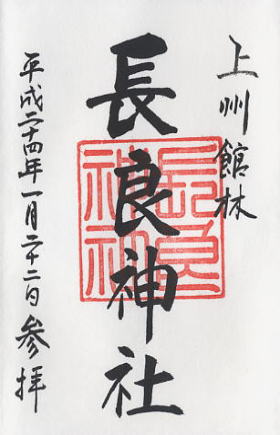 上州館林
長良神社
平成二十四年一月二十二日参拝
長良神社